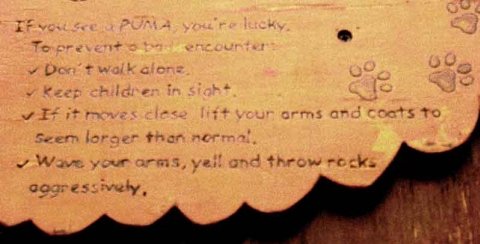 If you see a PUMA, you're lucky.
To prevent a bad encounter:
✓ Don't walk alone.
✓ Keep children in sight.
✓ If it moves close lift your arms and coats to
seem larger than normal.
✓ Wave your arms, yell and throw rocks
aggressively.